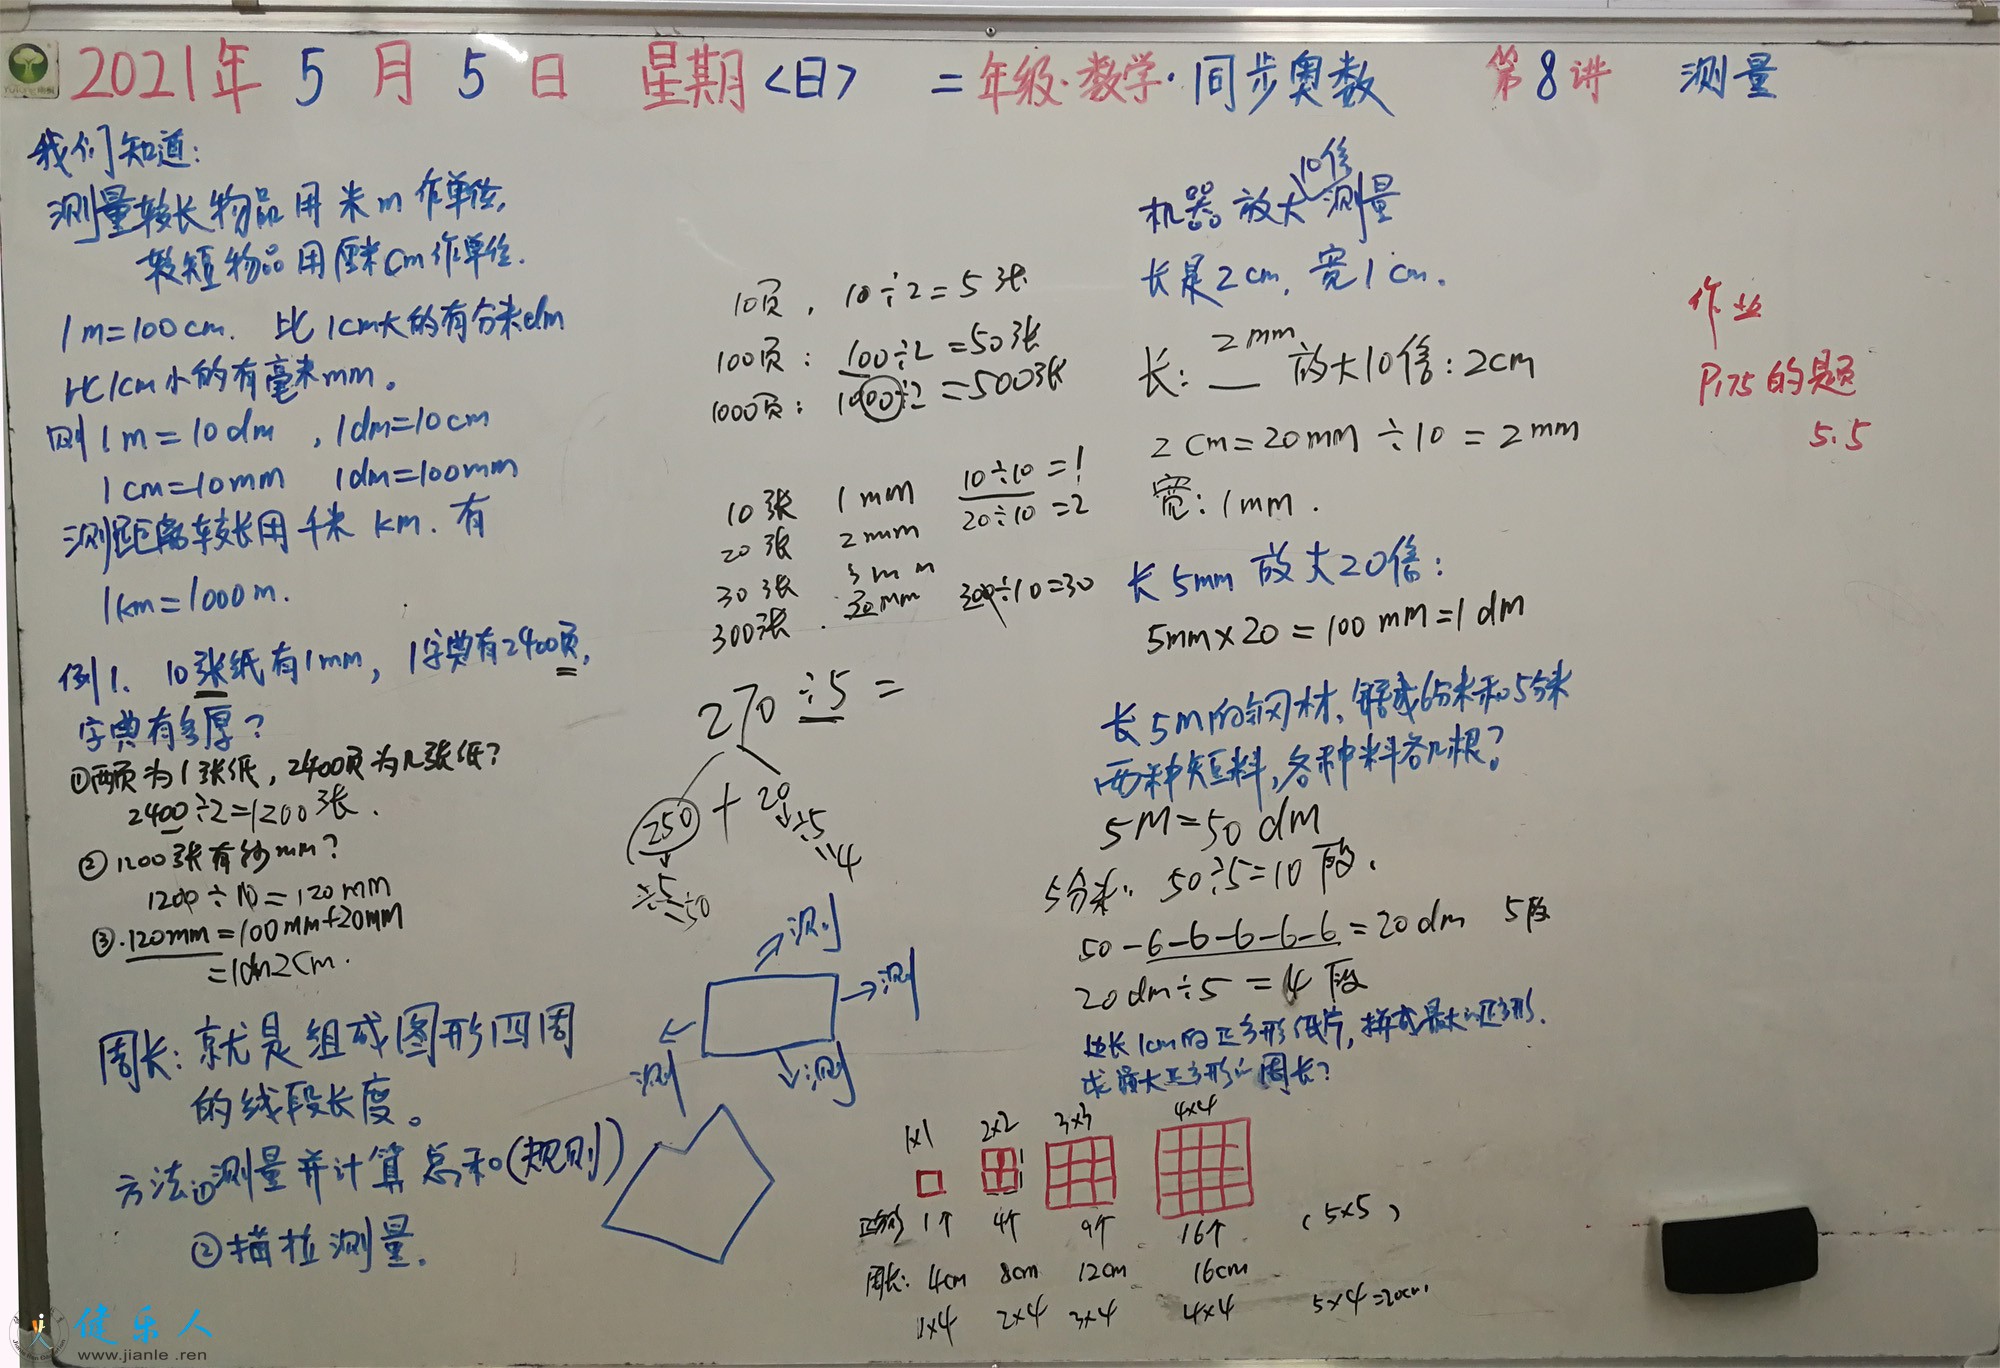 2021年 5 月 5 日 星期<日> 二年级·数学·同步奥数 第8讲 测量
我们知道:
测量较长物品用米m作单位,
较短物品用厘米cm作单位.
1m=100cm. 比1cm大的有分米dm
比1cm小的有毫米mm。
则1m=10dm ,1dm=10cm
1cm=10mm 1dm=100mm
测距离较长用千米 km. 有
1km=1000m.
例1. 10张纸有1mm, 1字典有2400页,
字典有多厚?
①两页为1张纸,2400页为几张纸?
2400÷2=1200张.
②1200张有多少mm?
1200÷10=120mm
③.120mm=100mm+20mm
=1dm2cm.
周长:就是组成图形四周
的线段长度。
方法:①测量并计算总和(规则)
②描拉测量.
10页, 10÷2=5张
100页: 100÷2=50张
1000页: 1000÷2=500张
10张 1mm 10÷10=1
20张 2mm 20÷10=2
30张 3mm
300张. 30mm 300÷10=30
270÷5=
250+20
÷5 ÷5
=50 =4
测
测
测
测
10倍
机器放大测量
长是2cm, 宽1cm.
2mm
长: 放大10倍:2cm
2cm=20mm÷10=2mm
宽:1mm.
长5mm放大20倍:
5mm×20=100mm=1dm
长5M的钢材,锯成6分米和5分米
两种短料,各种料各几根?
5M=50dm
5分米: 50÷5=10段.
50-6-6-6-6-6=20dm 5段
20dm÷5=4段
边长1cm的正方形纸片,拼成最大正方形.
求最大正方形的周长?
1×1 2×2 3×3 4×4
正方形 1个 4个 9个 16个 (5×5)
周长: 4cm 8cm 12cm 16cm
1×4 2×4 3×4 4×4 5×4=20cm.
作业
P175的题
5.5
健乐人
www.jianle.ren